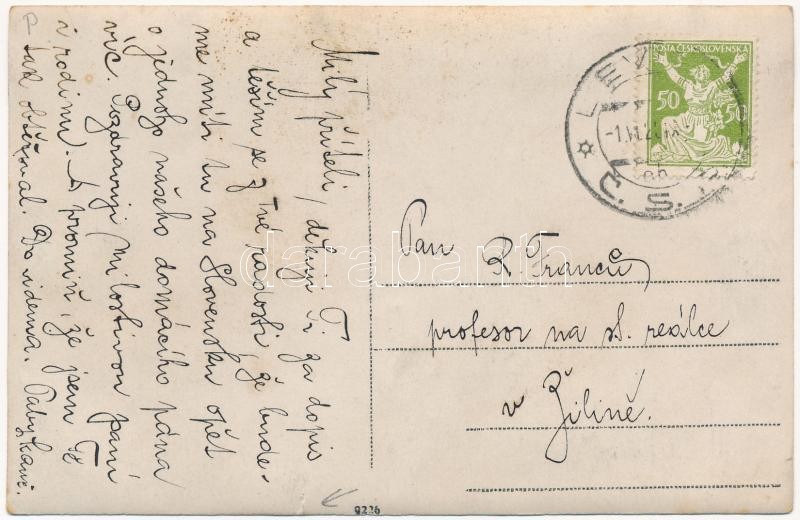 Milý příteli, děkuji Ti za dopis
a těším se z Tvé radosti, že bude-
me míti tu na Slovensku opět
o jednoho našeho domácího pána
víc. Pozdravuji Milostivou paní
i rodinu. A promiň, že jsem Tě
tak obtěžoval. Do videnia.
P
POŠTA ČESKOSLOVENSKÁ
50 50
LEV
Č.S.
Pan
R. Franců,
profesor na st. reálce
v Žilině.
darabanth
9226